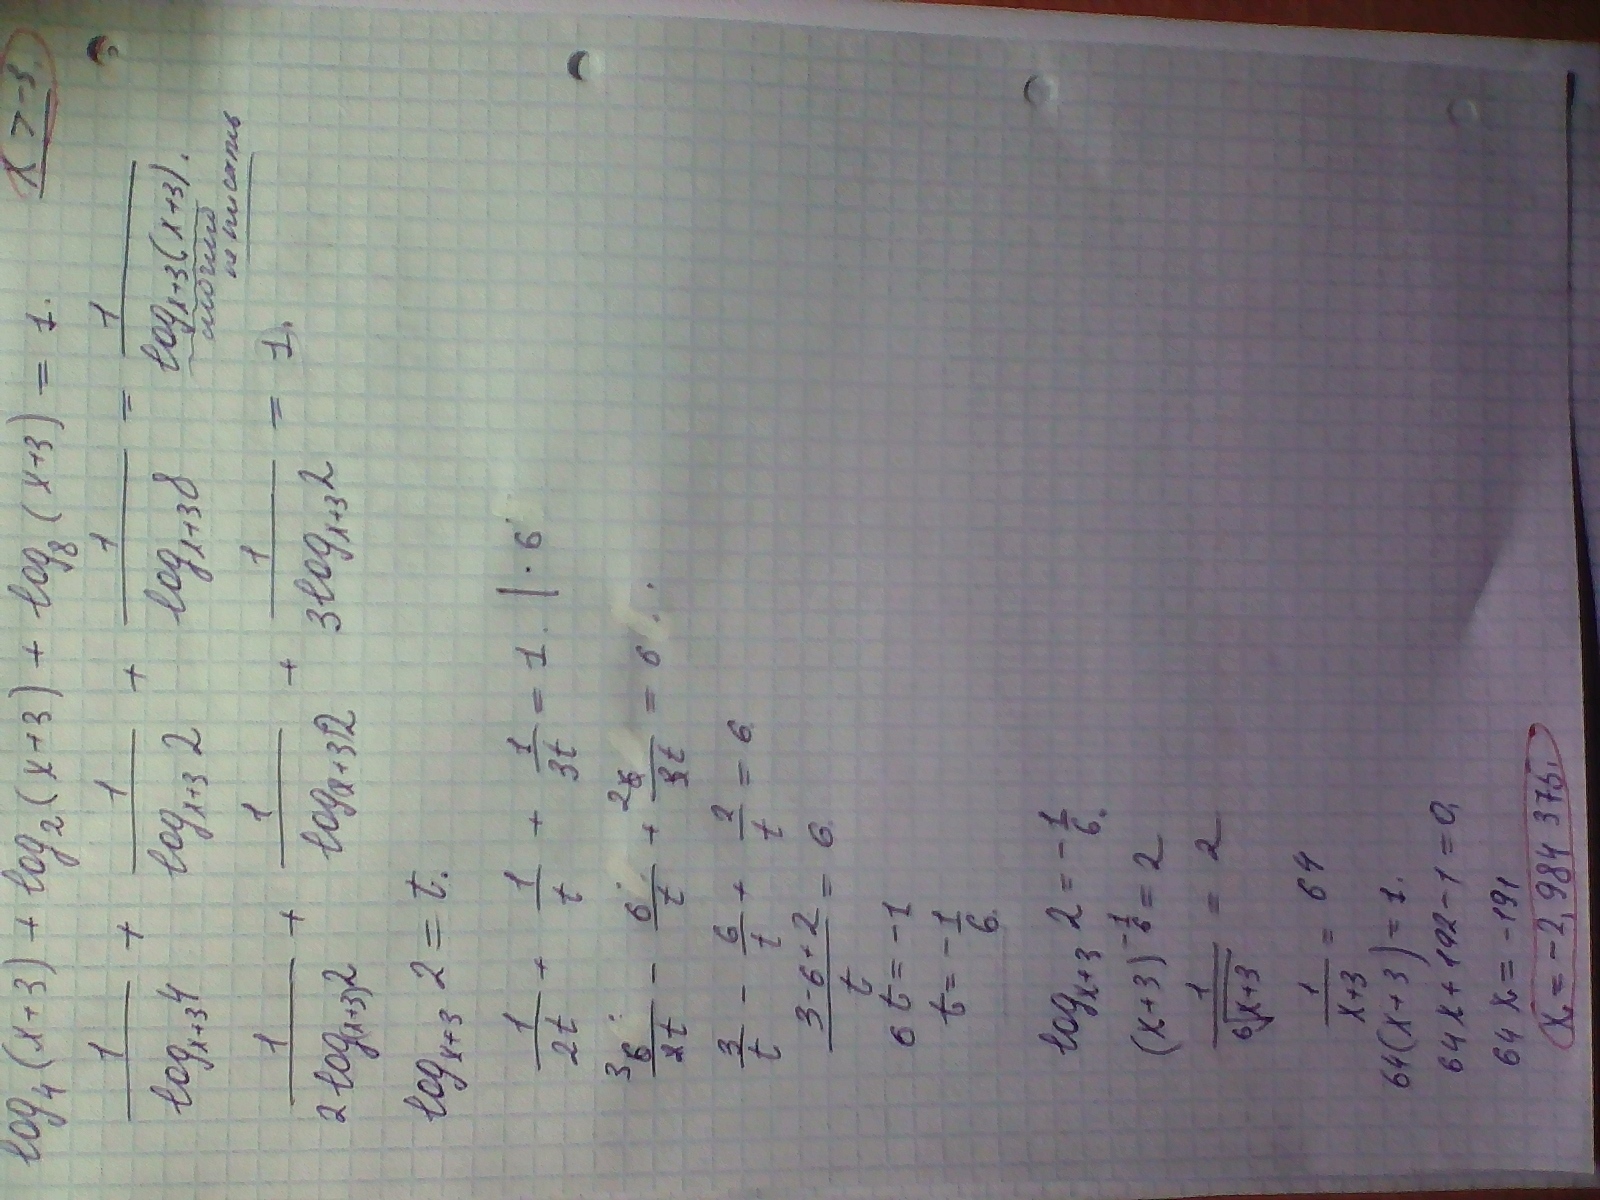 log₄(x+3) + log₂(x+3) + log₈(x+3) = 1. x > -3.
1/logₓ₊₃4 + 1/logₓ₊₃2 + 1/logₓ₊₃8 = 1/logₓ₊₃(x+3).
можно не писать
1/2log₍ₓ₊₃₎2 + 1/logₓ₊₃2 + 1/3logₓ₊₃2 = 1.
logₓ₊₃2 = t.
1/2t + 1/t + 1/3t = 1. | · 6
6/2t - 6/t + 6/3t = 6
3/t - 6/t + 2/t = 6
3-6+2/t = 6
6t = -1
t = -1/6
logₓ₊₃2 = -1/6.
(x+3)^-1/6 = 2
1/⁶√x+3 = 2
1/x+3 = 64
64(x+3) = 1.
64x+192-1=0,
64x = -191
x = -2,984 375.